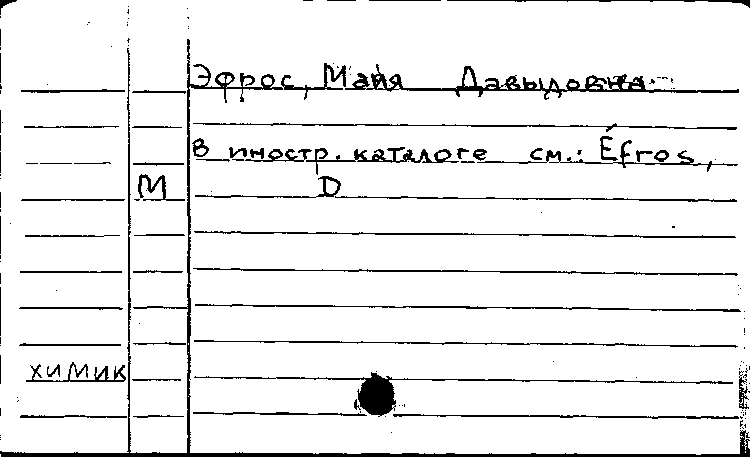 Эфрос, Майя Давыдовна.
В иностр. каталоге см.: Éfros,
M D
химик